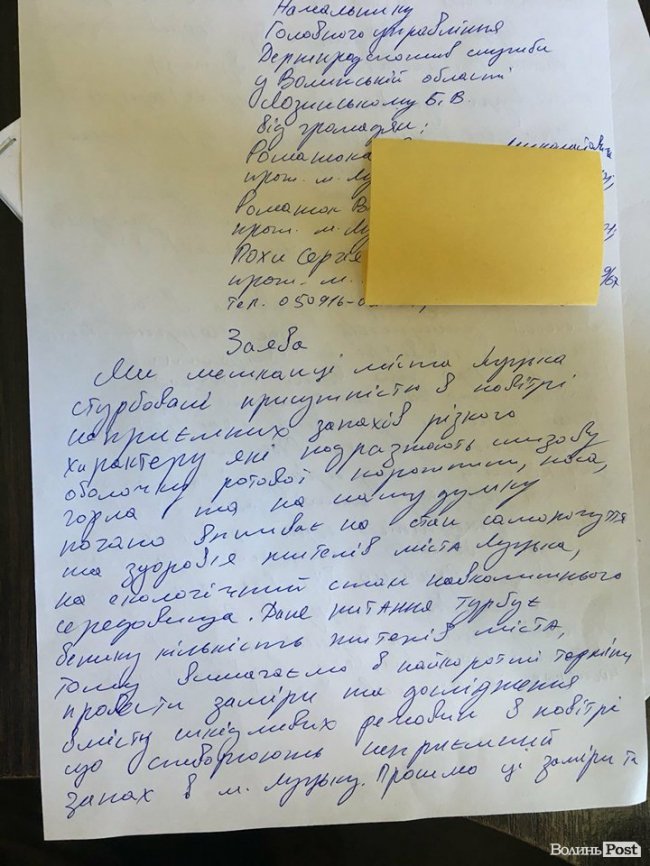 Начальнику
Головного управління
Держпродспоживслужби
у Волинській області
Лозинському Б.В.
від громадян:
Романюка
прож. м. Лу
Романюк В
прож. м. Лу
Рохи Сергія
прож. м. 9/67
тел. 050916-0
Заява
Ми мешканці міста Луцька
стурбовані присутністю в повітрі
неприємних запахів різного
характеру які подразнюють слизову
оболочку ротової порожнини, носа,
горла та на нашу думку
погано впливає на стан самопочуття
та здоров'я жителів міста Луцька,
на екологічний стан навколишнього
середовища. Дане питання турбує
велику кількість жителів міста,
тому вимагаємо в найкоротші терміни
провести заміри та дослідження
вмісту шкідливих речовин в повітрі
що створюють неприємний
запах в м. Луцьку. Просимо ці заміри та
ВолиньPost